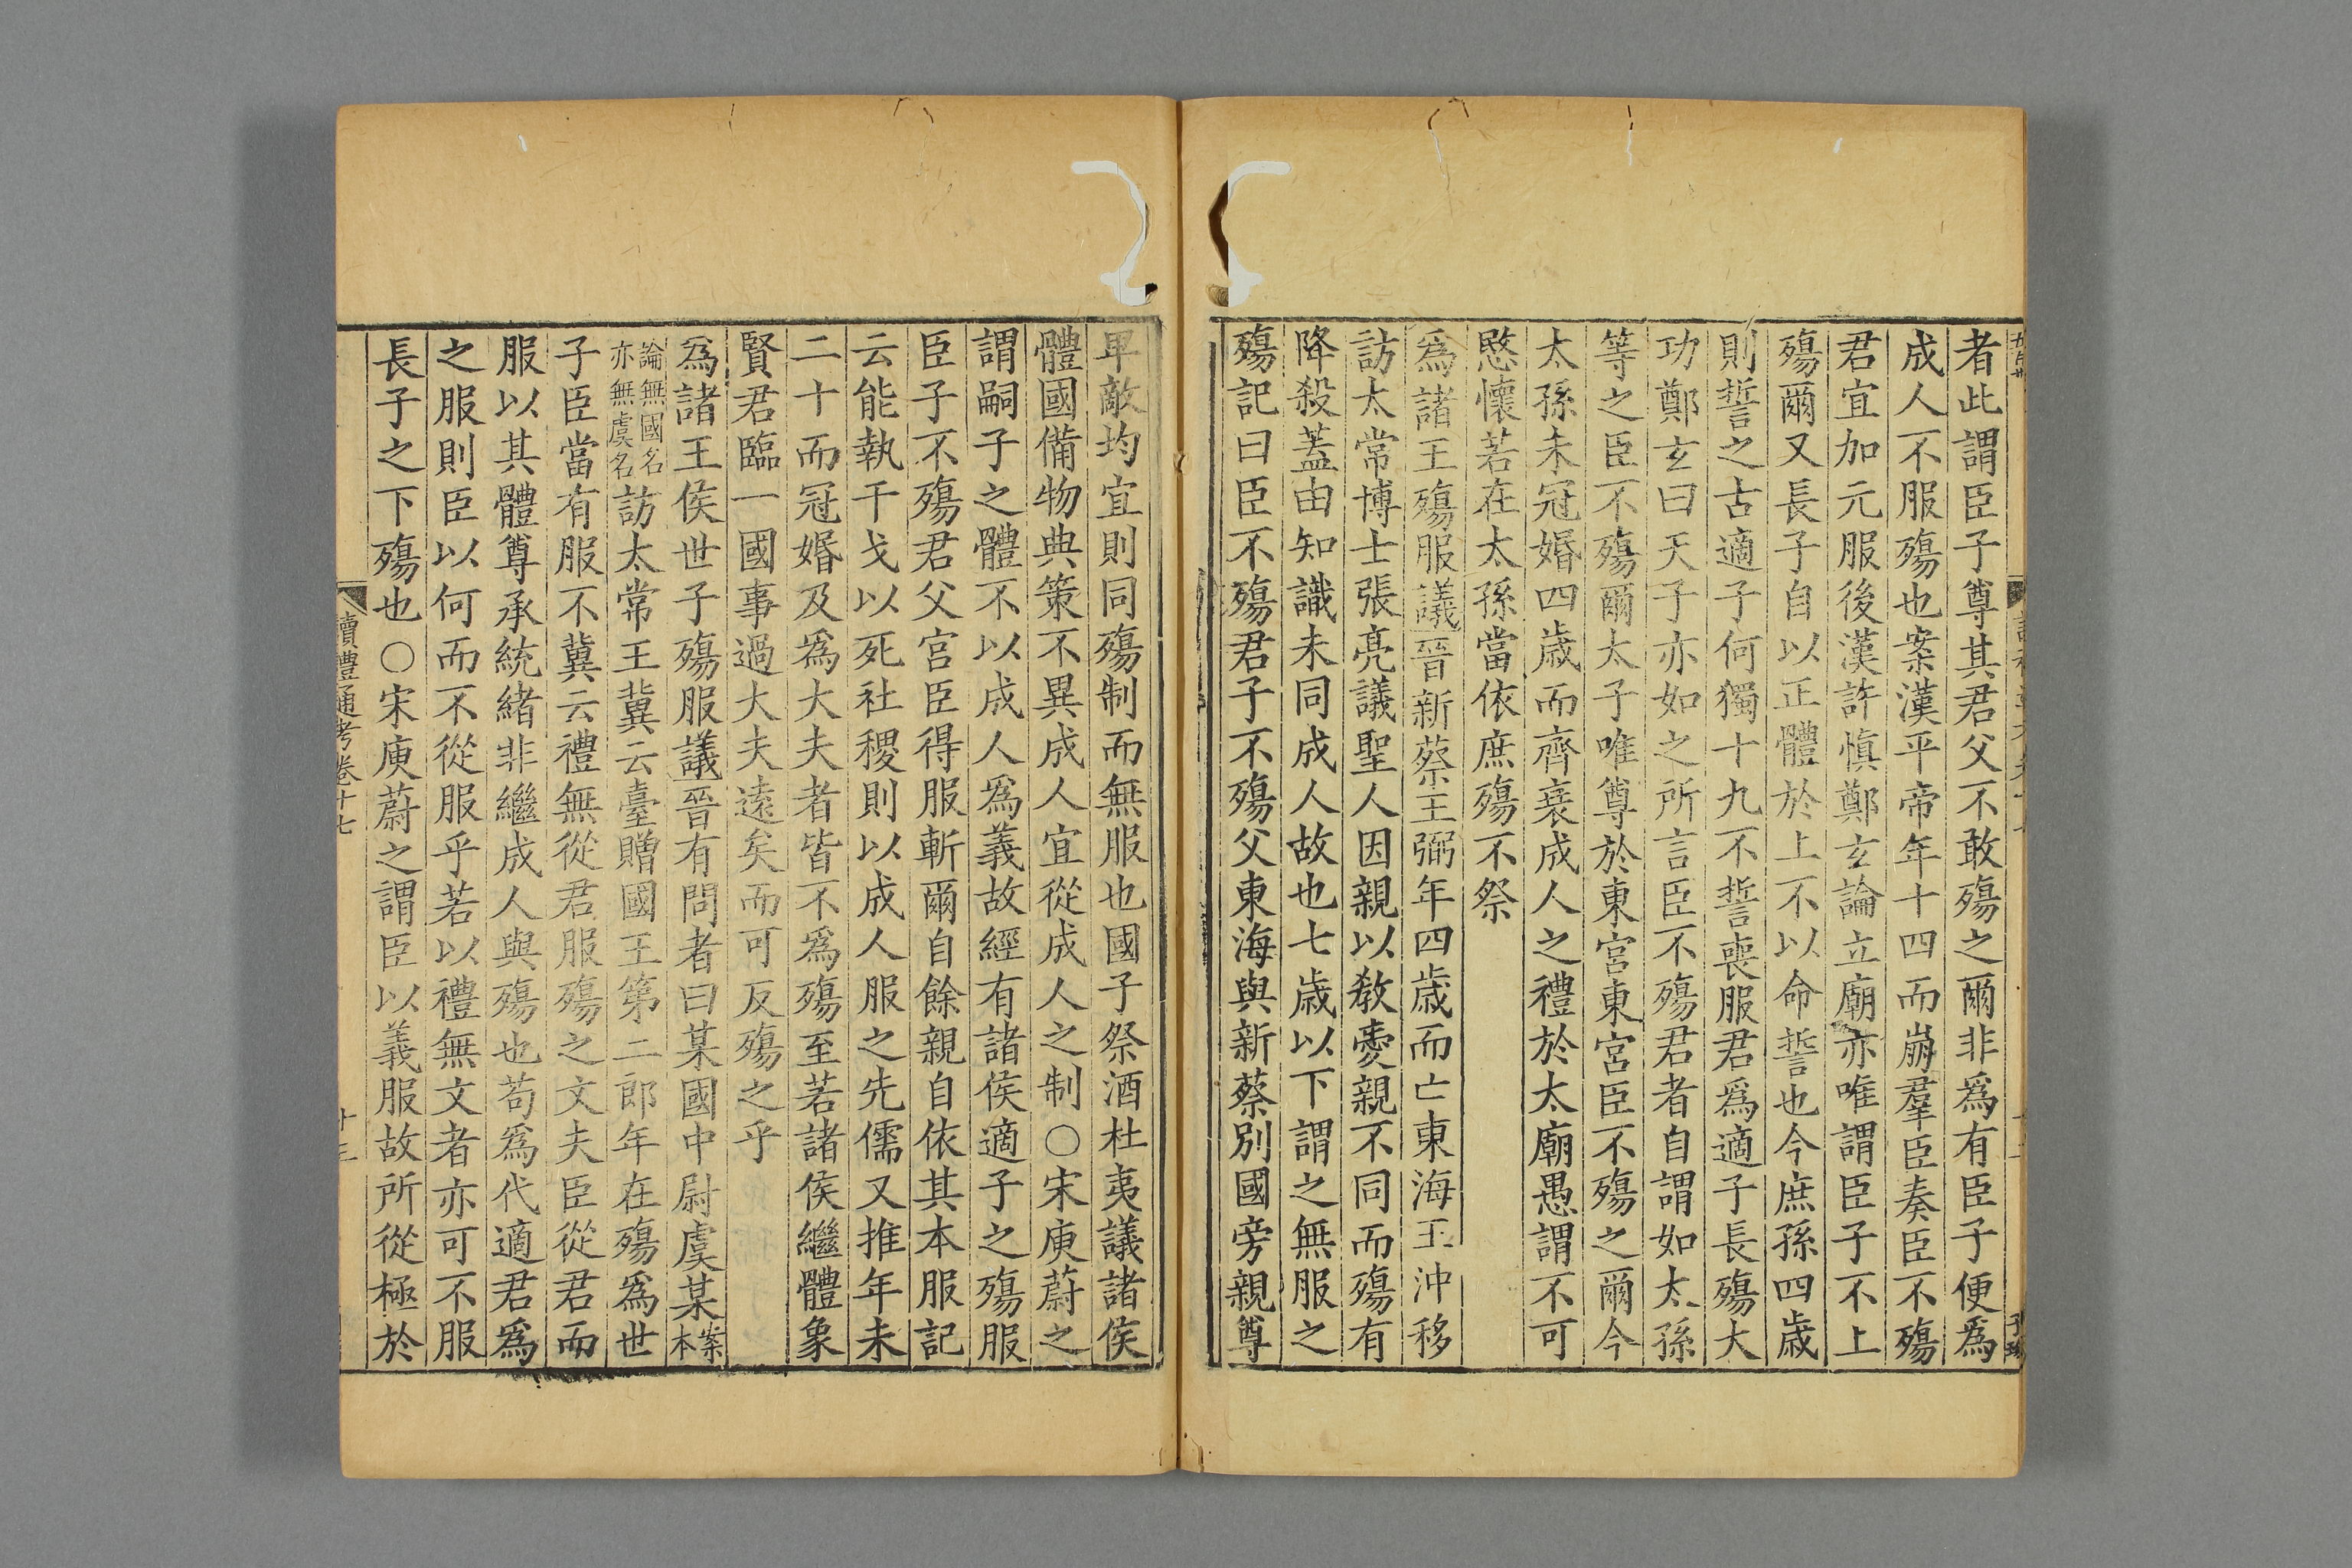 者此謂臣子尊其君父不敢殤之爾非爲有臣子便爲
成人不服殤也案漢平帝年十四而崩羣臣奏臣不殤
君宜加元服後漢許慎鄭玄論立廟亦唯謂臣子不上
殤爾又長子自以正體於上不以命誓也今庶孫四歲
則誓之古適子何獨十九不誓喪服君爲適子長殤大
功鄭玄曰天子亦如之所言臣不殤君者自謂如太孫
等之臣不殤爾太子唯尊於東宮東宮臣不殤之爾今
太孫未冠婚四歲而齊衰成人之禮於太廟愚謂不可
愍懷若在太孫當依庶殤不祭
爲諸王殤服議晉新蔡王弼年四歲而亡東海王沖移
訪太常博士張亮議聖人因親以敎愛親不同而殤有
降殺蓋由知識未同成人故也七歲以下謂之無服之
殤記曰臣不殤君子不殤父東海與新蔡別國旁親尊
卑敵均宜則同殤制而無服也國子祭酒杜夷議諸侯
體國備物典策不異成人宜從成人之制○宋庾蔚之
謂嗣子之體不以成人爲義故經有諸侯適子之殤服
臣子不殤君父宮臣得服斬爾自餘親自依其本服記
云能執干戈以死社稷則以成人服之先儒又推年未
二十而冠婚及爲大夫者皆不爲殤至若諸侯繼體象
賢君臨一國事過大夫遠矣而可反殤之乎
爲諸王侯世子殤服議晉有問者曰某國中尉虞某案本
論無國名亦無虞名訪太常王冀云臺贈國王第二郎年在殤爲世
子臣當有服不冀云禮無從君服殤之文夫臣從君而
服以其體尊承統緒非繼成人與殤也苟爲代適君爲
之服則臣以何而不從服乎若以禮無文者亦可不服
長子之下殤也○宋庾蔚之謂臣以義服故所從極於
讀禮通考卷十七
十三